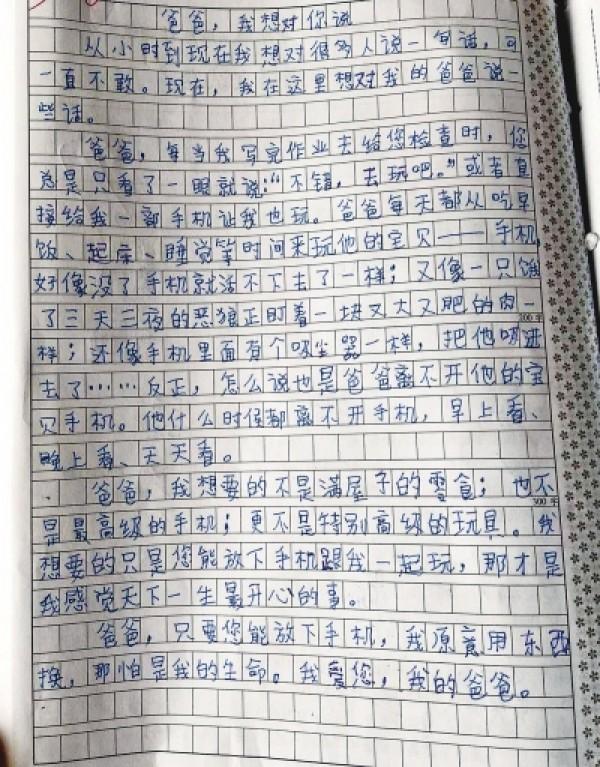 爸爸，我想对你说
从小时到现在我想对很多人说一句话，可
一直不敢。现在，我在这里想对我的爸爸说一
些话。
爸爸，每当我写完作业去给您检查时，您
总是只看了一眼就说：“不错，去玩吧。”或者直
接给我一部手机让我也玩。爸爸每天都从吃早
饭、起床、睡觉等时间来玩他的宝贝——手机，
好像没了手机就活不下去了一样；又像一只饿
了三天三夜的恶狼正盯着一块又大又肥的肉一
样；还像手机里面有个吸尘器一样，把他吸进
去了……反正，怎么说也是爸爸离不开他的宝
贝手机。他什么时候都离不开手机，早上看、
晚上看、天天看。
爸爸，我想要的不是满屋子的零食；也不
是最高级的手机；更不是特别高级的玩具。我
想要的只是您能放下手机跟我一起玩，那才是
我感觉天下一生最开心的事。
爸爸，只要您能放下手机，我原意用东西
换，那怕是我的生命。我爱您，我的爸爸。
200字
300字